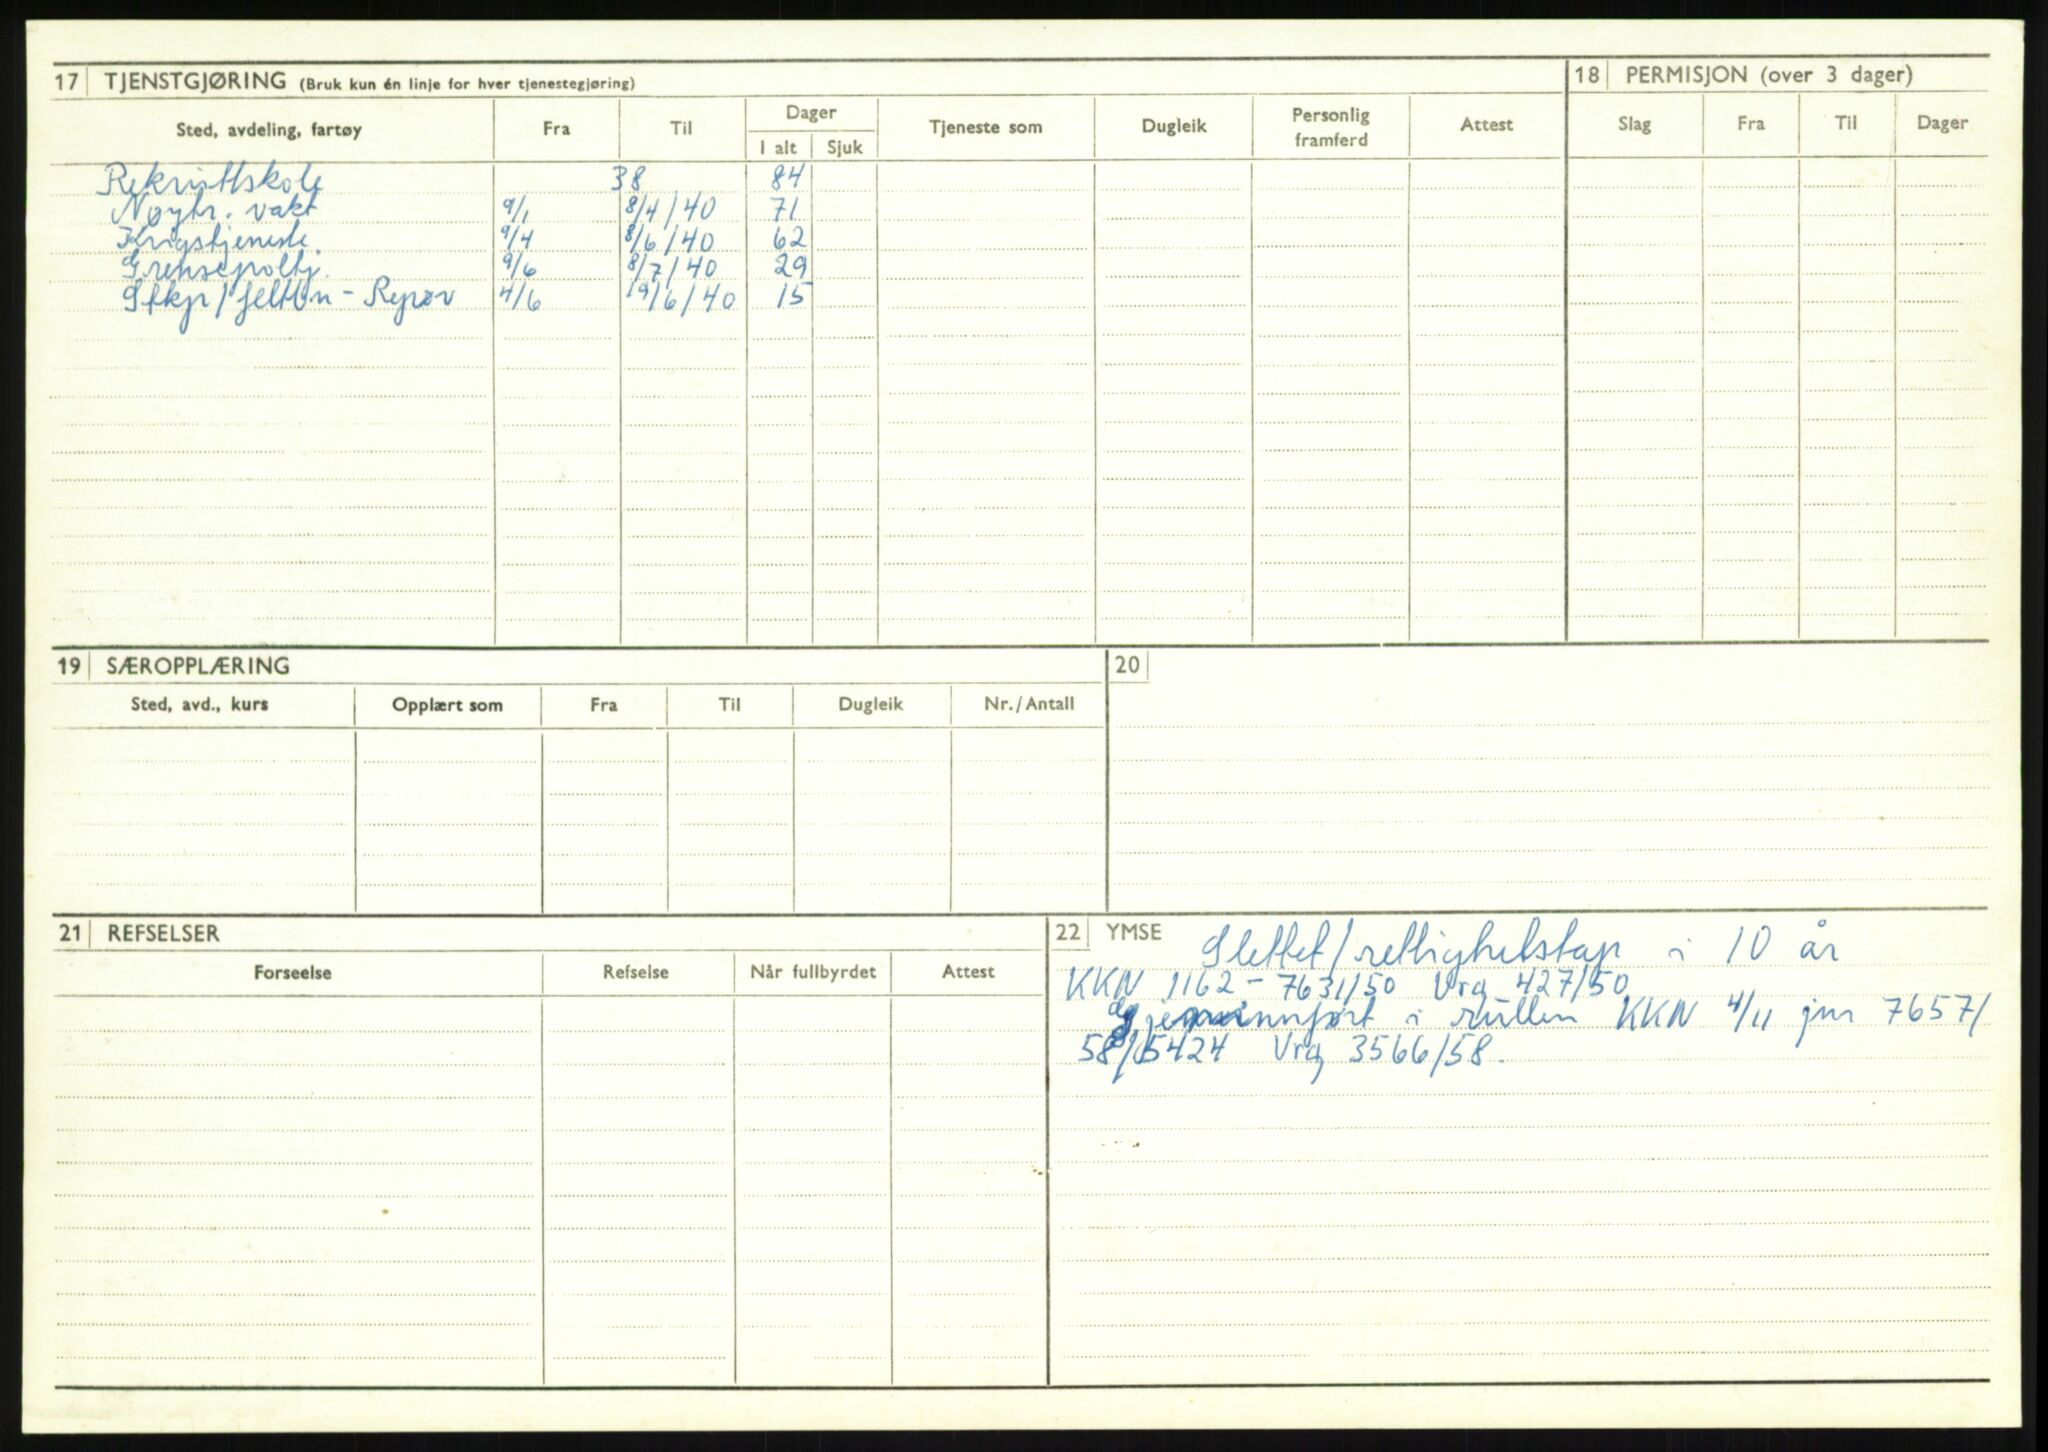 17 TJENSTGJØRING (Bruk kun én linje for hver tjenestegjøring)
Sted, avdeling, fartøy Fra Til Dager I alt Sjuk Tjeneste som Dugleik Personlig framferd Attest
Rekruttskole 38 84
Nøytr. vakt 9/1 8/4/40 71
Krigstjeneste. 9/4 8/6/40 62
Grensepoltj. 9/6 8/7/40 29
Sfkp/feltbn - Reprøv 4/6 19/6/40 15
18 PERMISJON (over 3 dager)
Slag Fra Til Dager
19 SÆROPPLÆRING
Sted, avd., kurs Opplært som Fra Til Dugleik Nr./Antall
20
21 REFSELSER
Forseelse Refselse Når fullbyrdet Attest
22 YMSE Slettet/rettighetstap i 10 år
KKN 1162 - 7631/50 Vrg 427/50
Gjeninnført i rullen KKN 4/11 jnr 7657/
58/5424 Vrg 3566/58.